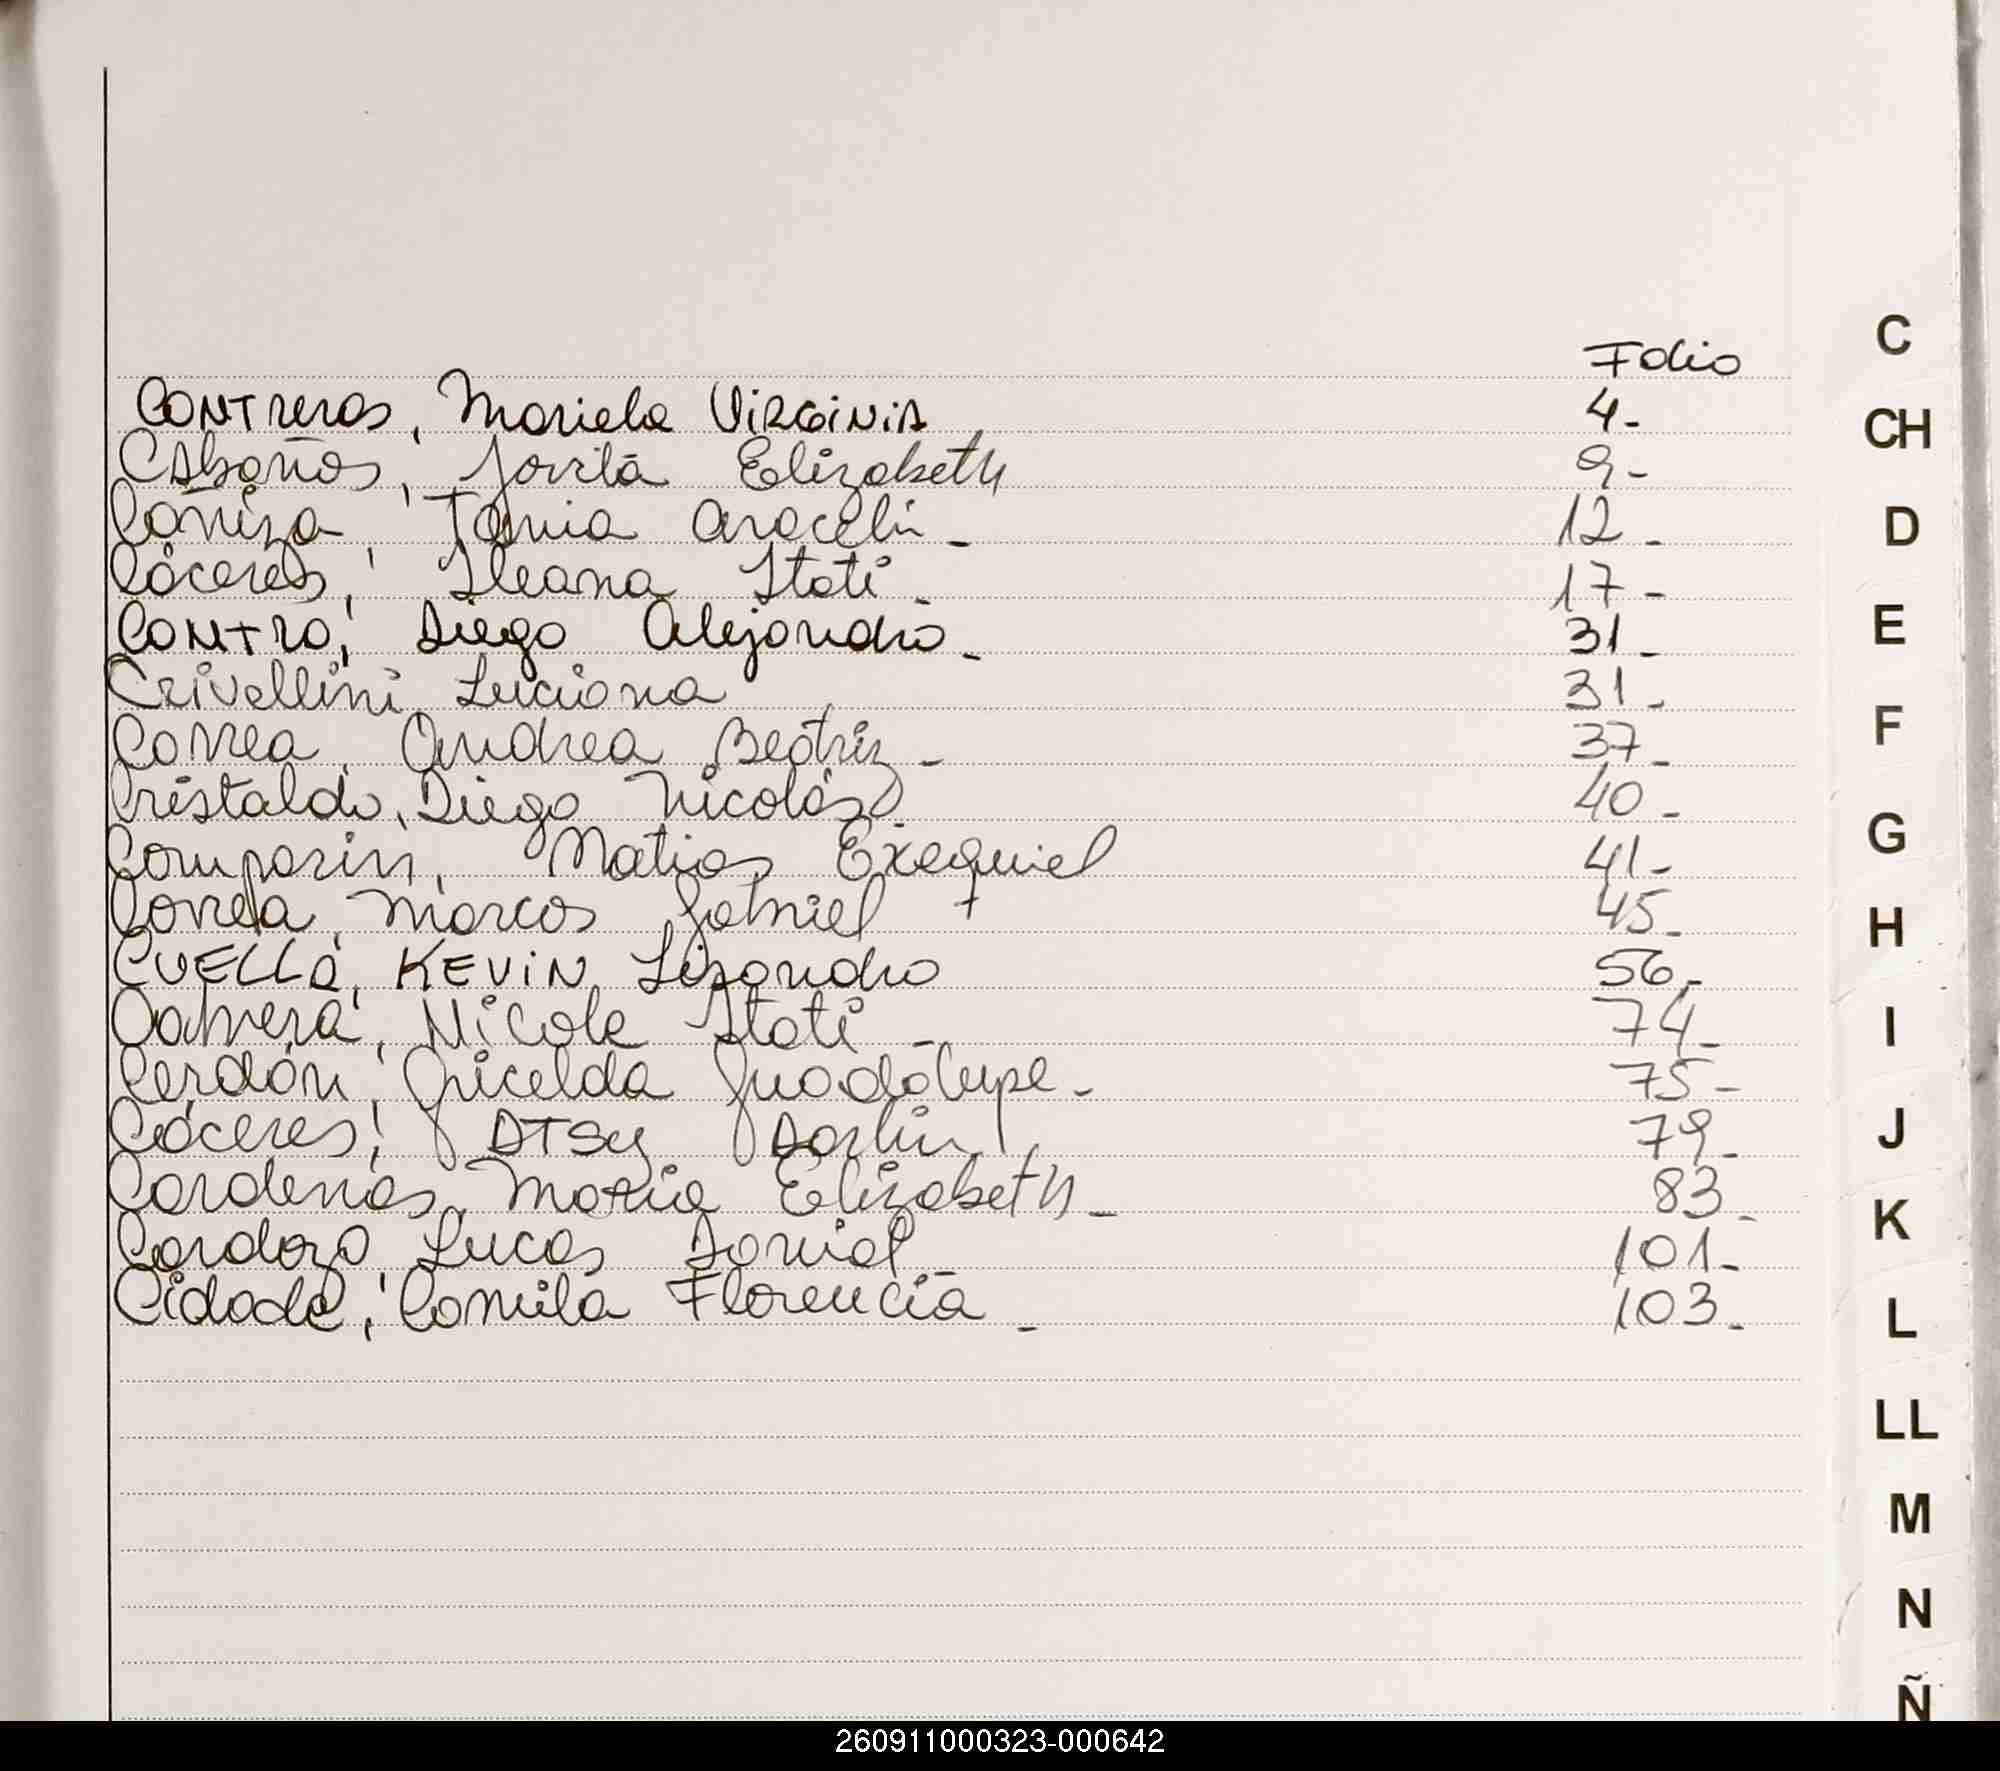 Folio
Contreras, Mariela Virginia 4-
Cabañas, Jovita Elizabeth 9-
Cañiza, Tania Araceli - 12 -
Cáceres, Ileana Itati - 17 -
Contra, Diego Alejandro - 31 -
Crivellini, Luciana 31 -
Correa, Andrea Beatriz - 37 -
Cristaldo, Diego Nicolás 40 -
Comparin, Matias Exequiel 41 -
Correa, Marcos Gabriel 45 -
Cuella, Kevin Lisandro 56 -
Cabrera, Nicole Itati - 74 -
Cerdán, Gricelda Guadalupe - 75 -
Cáceres, 79 -
Cardenas, Maria Elizabeth - 83 -
Cardozo, Lucas Daniel 101 -
Cidade, Camila Florencia - 103 -
C
CH
D
E
F
G
H
I
J
K
L
LL
M
N
Ñ
260911000323-000642